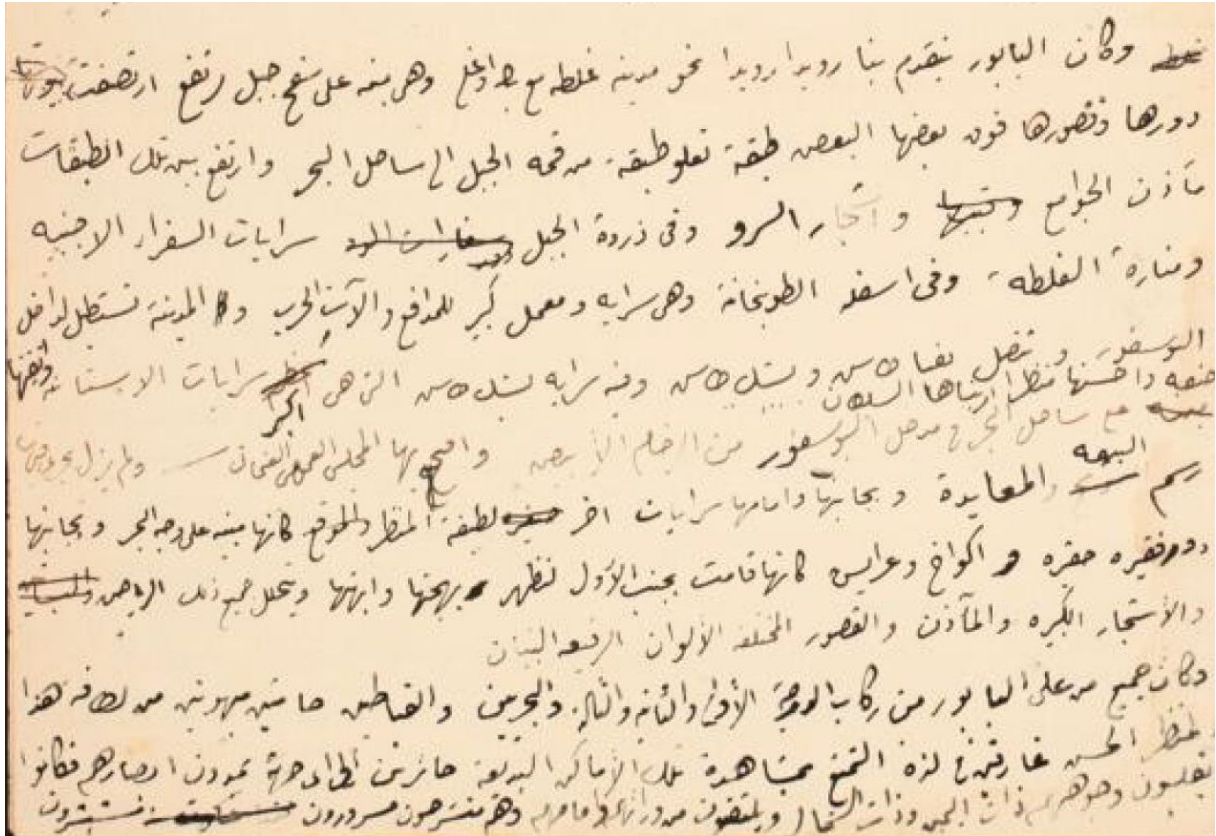 وكان البابور يتقدم بنا رويدا رويدا نحو مدينة غلطه مع وهى مبنيه على سفح جبل مرتفع ارتصفت بيوتها
دورها وقصورها فوق بعضها البعض طبقة تعلو طبقة من قمة الجبل الى ساحل البحر وارتفع بين تلك الطبقات
مآذن الجوامع وقببها و اشجار السرو وفى ذروة الجبل سرايات السفراء الاجنبيه
ومنارة الغلطه وفى اسفله الطوبخانة وهى سرايه ومعمل كبير للمدافع والآت الحرب و المدينة تستطيل لداخل
البوسفور و تتصل وفيه سرايه بشكطاس التى هى سرايات الاستانة واتقنها
صنعه واحسنها منظرا
على ساحل البحر فى مدخل البوسفور من الرخام الأبيض بها المجلس ولم يزل
رسم البيعه والمعايدة وبجانبها وامامها سرايات اخر صغيره لطيفة المنظر والموقع كانها مبنيه على وجه البحر وبجانبها
دور فقيره حقيره و اكواخ وعرايس كانها قامت بجنب الأول لتظهر بهجتها وابهتها ويتخلل جميع ذلك الرياض
والأشجار الكبيره والمآذن والقصور المختلفه الألوان الرفيعه البنيان
وكان جميع من على البابور من ركاب الدرجة الأولى والثانيه والثالثه والبحريين والقباطين صامتين مبهوتين من لطافة هذا
المنظر الحسن غارقين فى لذة التمتع بمشاهدة تلك الأماكن البديعة حائرين الى اى جهة يمدون ابصارهم فكانوا
يقلبون وجوههم ذات اليمين وذات الشمال ويلتفتون من ورائهم وامامهم وهم منشرحون مسرورون مستبشرون